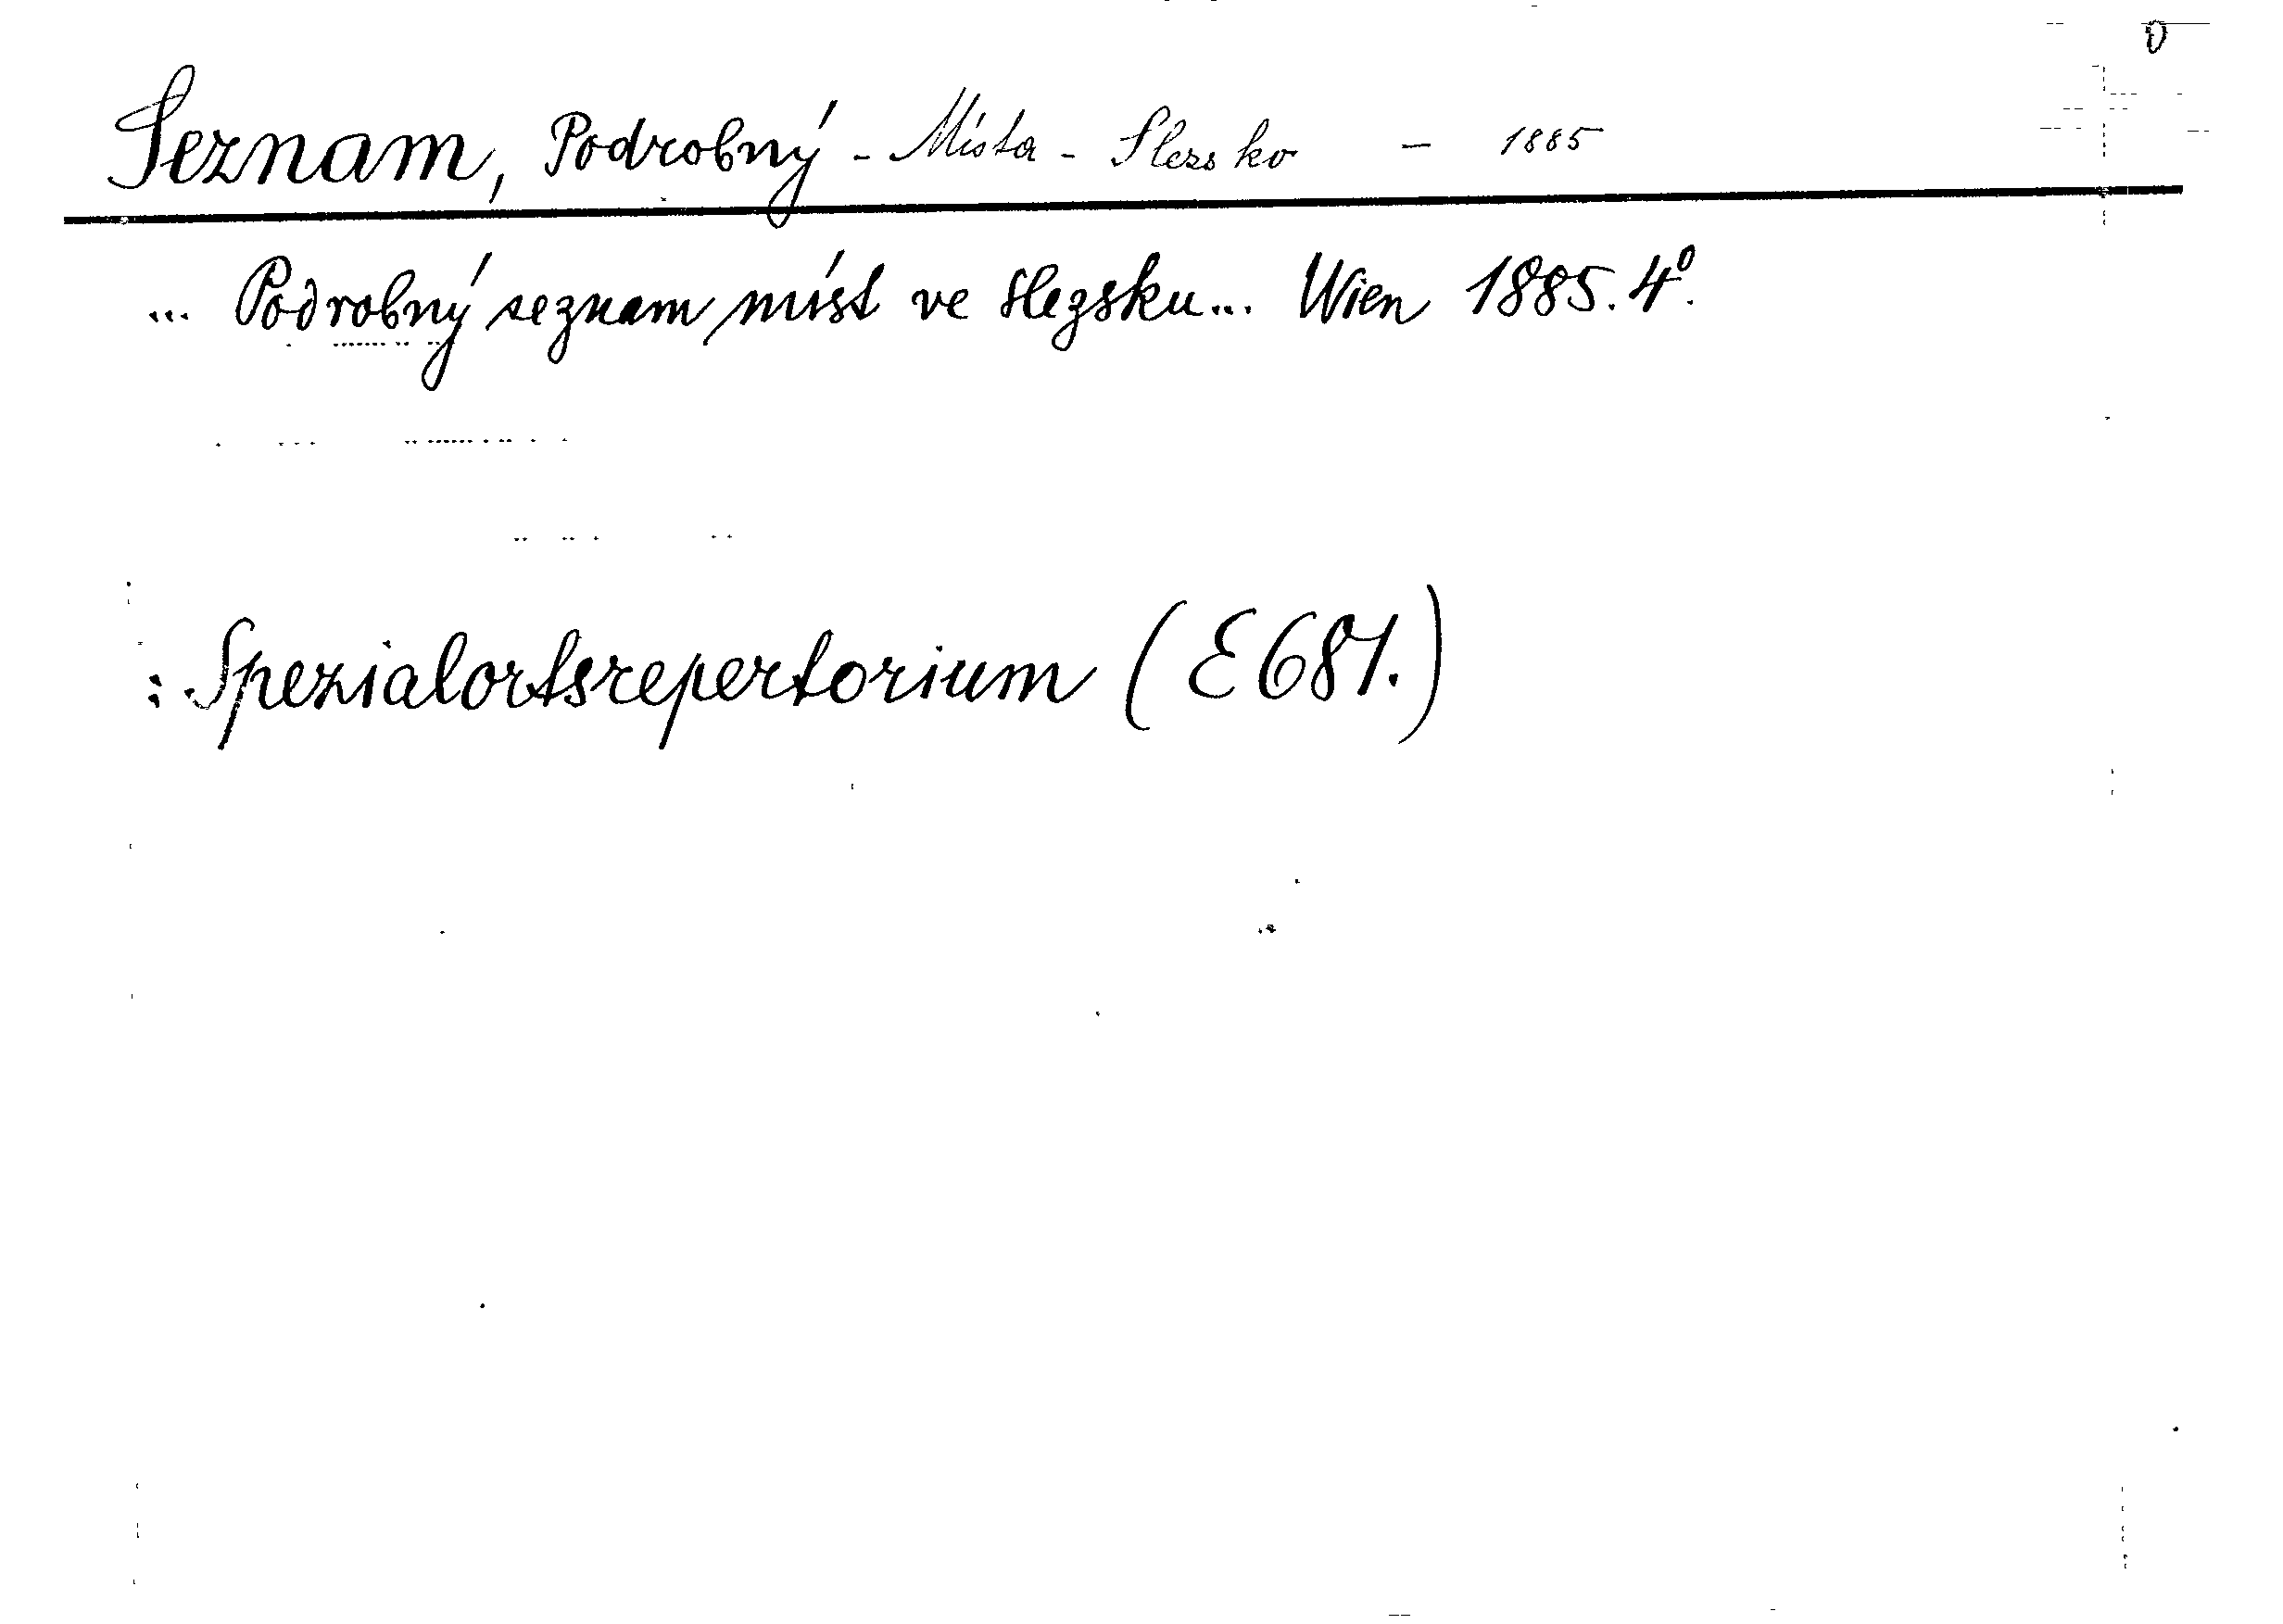 0
Seznam, Podrobný - Místa - Slezsko - 1885
... Podrobný seznam míst ve Slezsku... Wien 1885. 4º.
: Spezialortsrepertorium (E 681.)